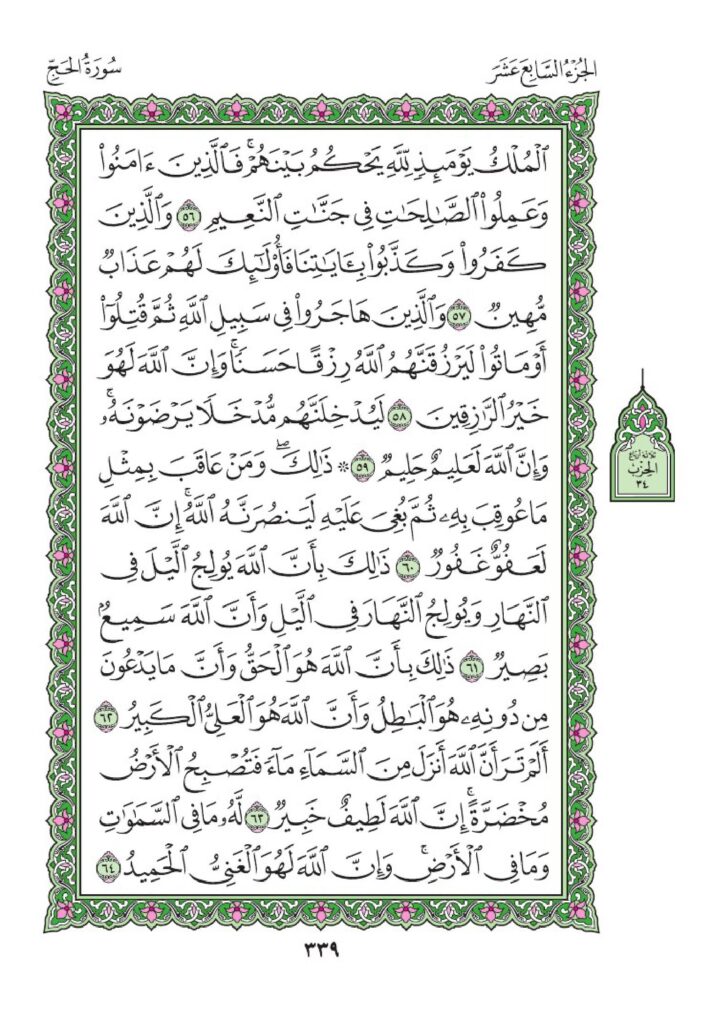 الجُزْءُ السَّابِعَ عَشَرَ
سُورَةُ الحَجِّ
ٱلْمُلْكُ يَوْمَئِذٍ لِّلَّهِ يَحْكُمُ بَيْنَهُمْۚ فَٱلَّذِينَ ءَامَنُوا۟
وَعَمِلُوا۟ ٱلصَّٰلِحَٰتِ فِى جَنَّٰتِ ٱلنَّعِيمِ ٥٦ وَٱلَّذِينَ
كَفَرُوا۟ وَكَذَّبُوا۟ بِـَٔايَٰتِنَا فَأُو۟لَٰٓئِكَ لَهُمْ عَذَابٌ
مُّهِينٌ ٥٧ وَٱلَّذِينَ هَاجَرُوا۟ فِى سَبِيلِ ٱللَّهِ ثُمَّ قُتِلُوٓا۟
أَوْ مَاتُوا۟ لَيَرْزُقَنَّهُمُ ٱللَّهُ رِزْقًا حَسَنًاۚ وَإِنَّ ٱللَّهَ لَهُوَ
خَيْرُ ٱلرَّٰزِقِينَ ٥٨ لَيُدْخِلَنَّهُم مُّدْخَلًا يَرْضَوْنَهُۥۚ
وَإِنَّ ٱللَّهَ لَعَلِيمٌ حَلِيمٌ ٥٩ ۞ ذَٰلِكَۖ وَمَنْ عَاقَبَ بِمِثْلِ
مَا عُوقِبَ بِهِۦ ثُمَّ بُغِىَ عَلَيْهِ لَيَنصُرَنَّهُ ٱللَّهُۚ إِنَّ ٱللَّهَ
لَعَفُوٌّ غَفُورٌ ٦٠ ذَٰلِكَ بِأَنَّ ٱللَّهَ يُولِجُ ٱلَّيْلَ فِى
ٱلنَّهَارِ وَيُولِجُ ٱلنَّهَارَ فِى ٱلَّيْلِ وَأَنَّ ٱللَّهَ سَمِيعٌۢ
بَصِيرٌ ٦١ ذَٰلِكَ بِأَنَّ ٱللَّهَ هُوَ ٱلْحَقُّ وَأَنَّ مَا يَدْعُونَ
مِن دُونِهِۦ هُوَ ٱلْبَٰطِلُ وَأَنَّ ٱللَّهَ هُوَ ٱلْعَلِىُّ ٱلْكَبِيرُ ٦٢
أَلَمْ تَرَ أَنَّ ٱللَّهَ أَنزَلَ مِنَ ٱلسَّمَآءِ مَآءً فَتُصْبِحُ ٱلْأَرْضُ
مُخْضَرَّةًۗ إِنَّ ٱللَّهَ لَطِيفٌ خَبِيرٌ ٦٣ لَّهُۥ مَا فِى ٱلسَّمَٰوَٰتِ
وَمَا فِى ٱلْأَرْضِۗ وَإِنَّ ٱللَّهَ لَهُوَ ٱلْغَنِىُّ ٱلْحَمِيدُ ٦٤
ثلاثة أرباع
الحزب
٣٤
٣٣٩